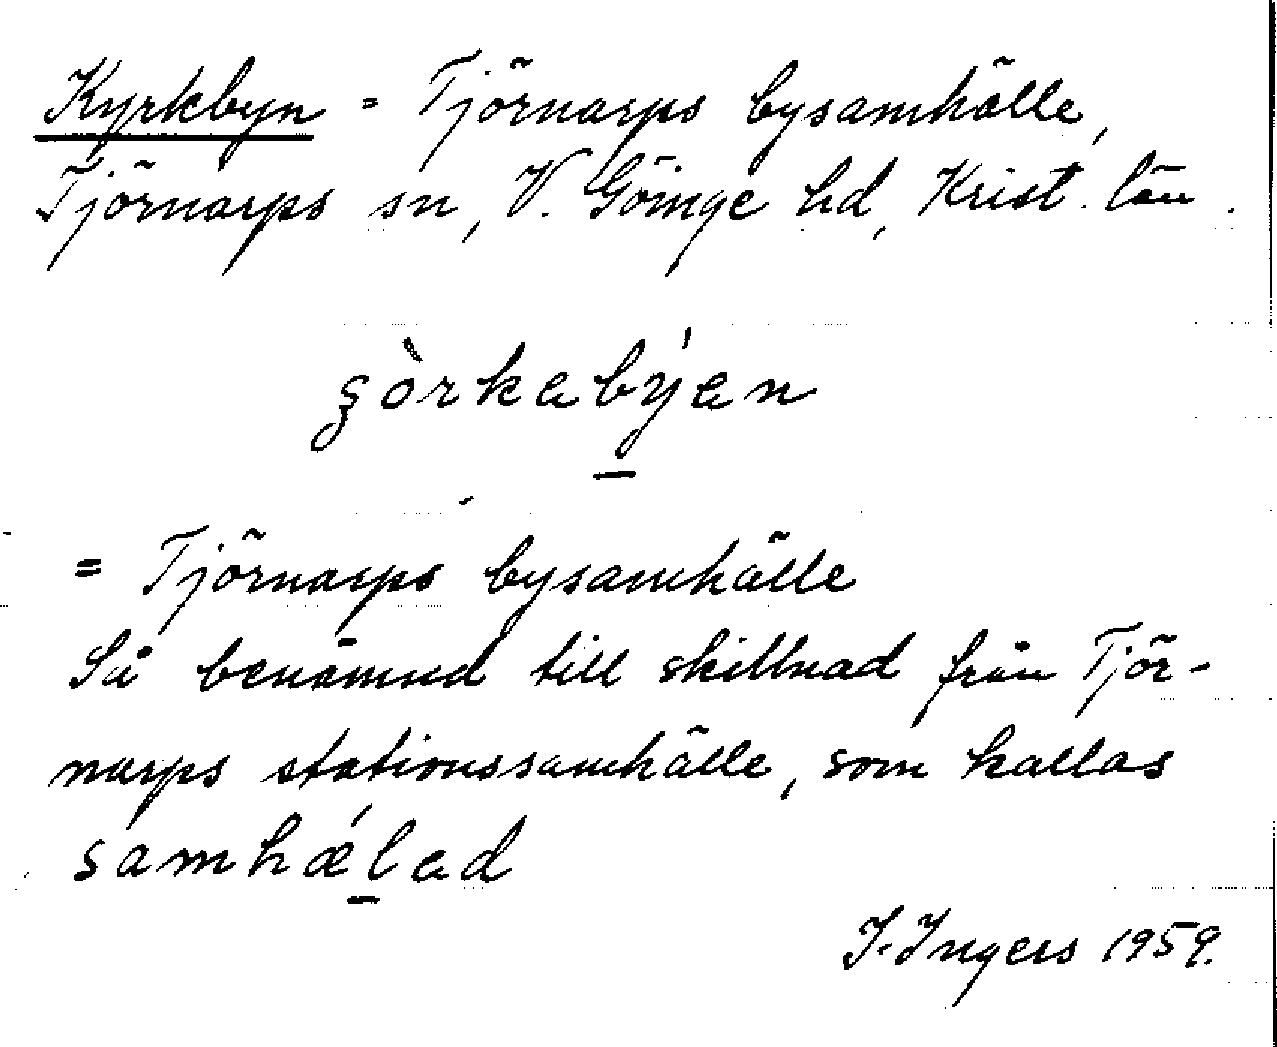 Kyrkbyn = Tjörnarps bysamhälle,
Tjörnarps sn, V. Göinge hd, Krist. län.
ʂòrkabýan
= Tjörnarps bysamhälle
Så benämnd till skillnad från Tjör-
narps stationssamhälle, som kallas
samhǽlad
I. Ingers 1959.